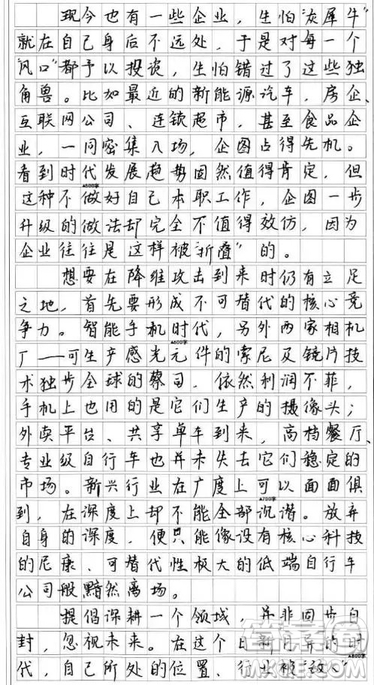 现今也有一些企业，生怕“灰犀牛”
就在自己身后不远处，于是对每一个
“风口”都予以投谈，生怕错过了这些独
角兽。比如最近的新能源汽车，房企、
互联网公司、连锁超市，甚至食品企
业，一同密集入场，企图占得先机。
看到时代发展趋势固然值得肯定，但
这种不做好自己本职工作，企图一步
升级的做法却完全不值得效仿，因为
企业往往是这样被“折叠”的。
想要在降维攻击到来时仍有立足
之地，首先要形成不可替代的核心竞
争力。智能手机时代，另外两家相机
厂——可生产感光元件的索尼及镜片技
术独步全球的蔡司，依然利润不菲，
手机上也用的是它们生产的摄像头；
外卖平台、共享单车到来，高档餐厅、
专业级自行车也并未失去它们稳定的
市场。新兴行业在广度上可以面面俱
到，在深度上却不能全部沉潜。放弃
自身的深度，便只能像没有核心科技
的尼康、可替代性极大的低端自行车
公司般黯然离场。
提倡深耕一个领域，并非固步自
封，忽视未来。在这个日新月异的时
代，自己所处的位置、行业被“敌人”